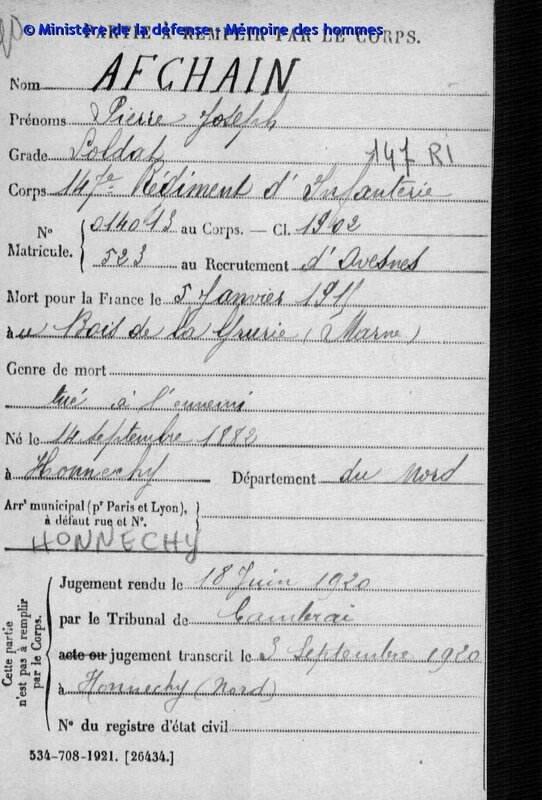 © Ministère de la défense - Mémoire des hommes
PARTIE À REMPLIR PAR LE CORPS.
Nom AFCHAIN
Prénoms Pierre Joseph
Grade Soldat
147 RI
Corps 147e Régiment d'Infanterie
N° Matricule. { 014013 au Corps. — Cl. 1902
523 au Recrutement d'Avesnes
Mort pour la France le 5 Janvier 1915
au Bois de la Grurie (Marne)
Genre de mort
tué à l'ennemi
Né le 14 septembre 1882
à Honnechy Département du Nord
Arrt municipal (pr Paris et Lyon), }
à défaut rue et N°.
HONNECHY
Cette partie
n'est pas à remplir
par le Corps.
Jugement rendu le 18 Juin 1920
par le Tribunal de Cambrai
acte ou jugement transcrit le 3 Septembre 1920
à Honnechy (Nord)
N° du registre d'état civil
534-708-1921. [26434.]